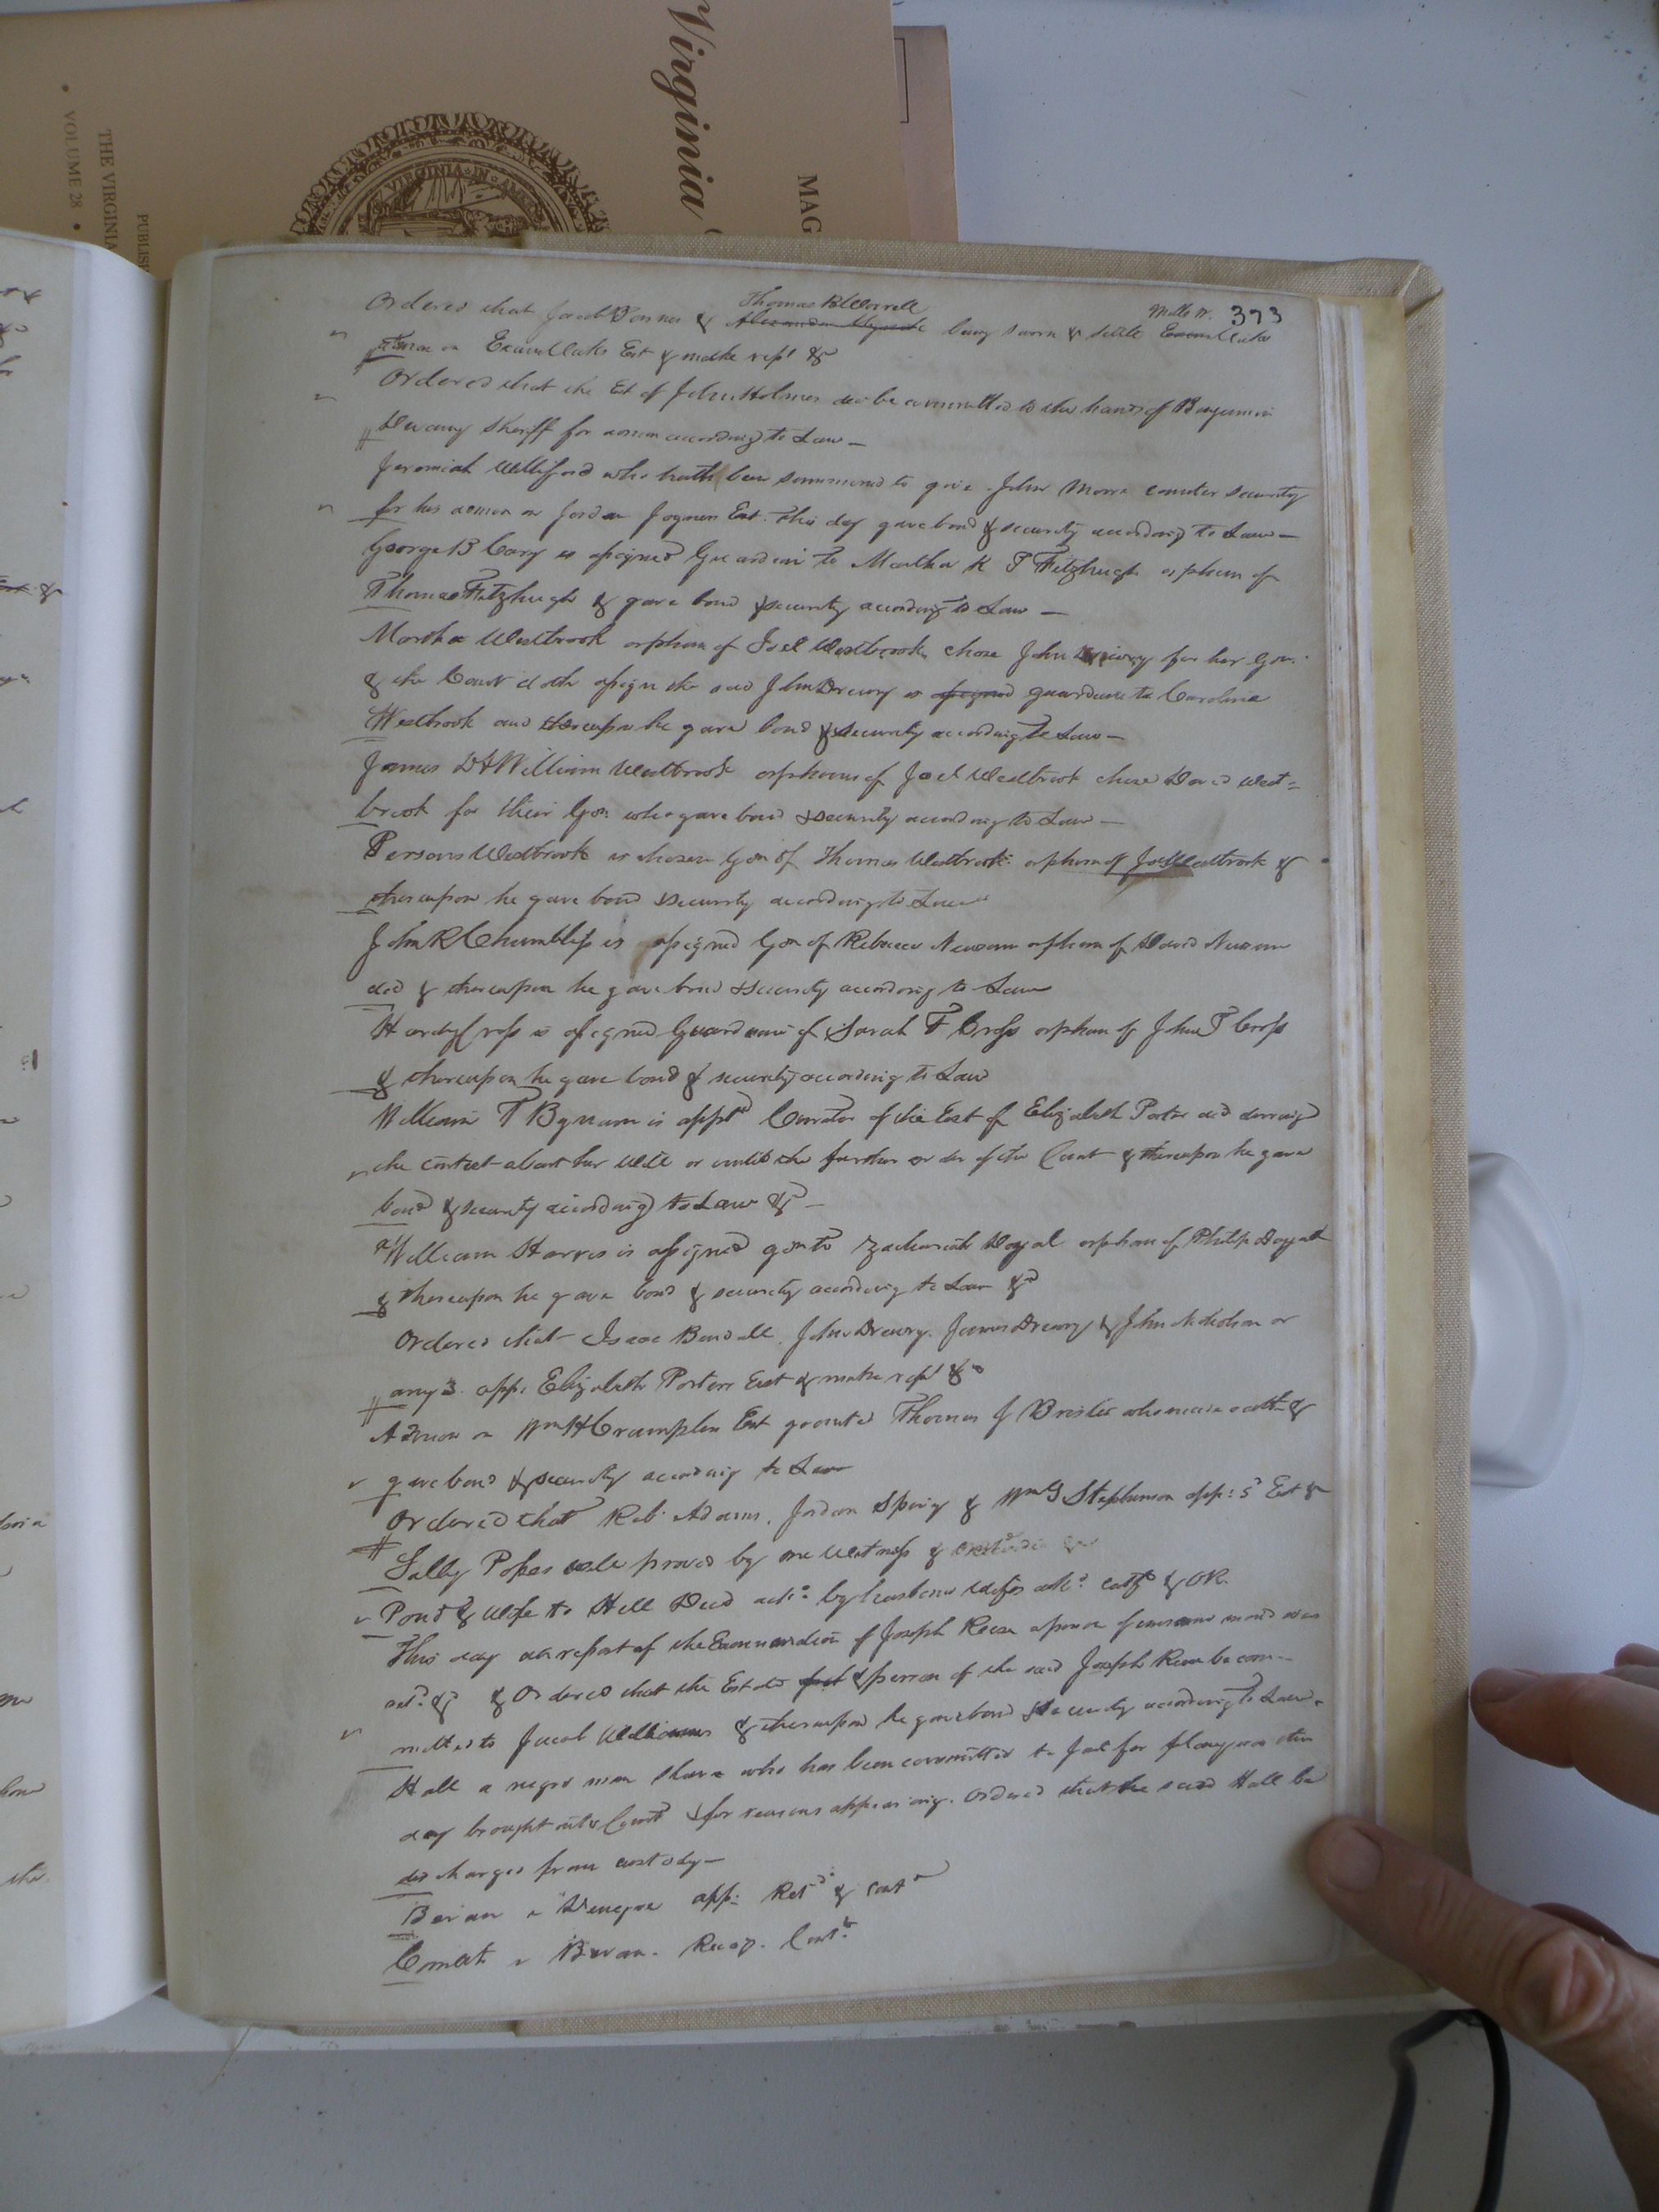 Virginia
MAG
THE VIRGINIA
VOLUME 28
PUBLISH
VIRGINIA IN AM
373
Thomas B Worrell
Mills W.
Ordered that Jacob Barnes & being sworn & settle
admon on Est & make rept &
Ordered that the Est of John Holmes dec be committed to the hands of Benjamin
Devany Sheriff for admon according to Law —
Jeremiah Williford who hath been summoned to give John Moore counter security
for his admon on Jordan Joyners Est. this day gave bond & security according to Law —
George B Cary is assigned Guardian to Martha K T Fitzhugh orphan of
Thomas Fitzhugh & gave bond & security according to Law —
Martha Westbrook orphan of Joel Westbrook chose John Drewry for her Gdn.
& the Court doth assign the said John Drewry as assigned guardian to Caroline
Westbrook and thereupon he gave bond & security according to Law —
James D & William Westbrook orphans of Joel Westbrook chose David West=
brook for their Gdn: who gave bond & security according to Law —
Persons Westbrook is chosen Gdn of Thomas Westbrook orphan of Joel Westbrook &
thereupon he gave bond & security according to Law
John R Chambliss is assigned Gdn of Rebecca Newsom orphan of David Newsom
decd & thereupon he gave bond & security according to Law
Hardy Cross is assigned Guardian of Sarah F Cross orphan of John T Cross
& thereupon he gave bond & security according to Law
William T Bynum is apptd Curator of the Est of Elizabeth Porter decd during
the contest about her will or until the further order of the Court & thereupon he gave
bond & security according to Law & —
William Harris is assigned gdn to Zachariah Doyal orphan of Philip Doyal
& thereupon he gave bond & security according to Law &
Ordered that Isaac Bendall, John Drewry. James Drewry & John Nicholson or
any 3 app: Elizabeth Porters Est & make rept &
Admon on Wm H Crumpler Est granted Thomas J who made oath &
gave bond & security according to Law
Ordered that Rob: Adams, Jordan Spivy & Wm G Stephenson app: sd Est &
Sally Popes will proved by one witness &
Pond & wife to Hill Deed ack: by husband wifes ack: certf & OR.
This day a report of the Examination of Joseph Reese a person of unsound mind was
retd: & & Ordered that the Estate & person of the said Joseph Reese be com-
mitted to Jacob Williams & thereupon he gave bond & security according to Law.
Hall a negro man slave who has been committed to Jail for felony was this
day brought into Court & for reasons appearing. Ordered that the said Hall be
discharged from custody —
app: Retd & Cont
v Recog. Contd